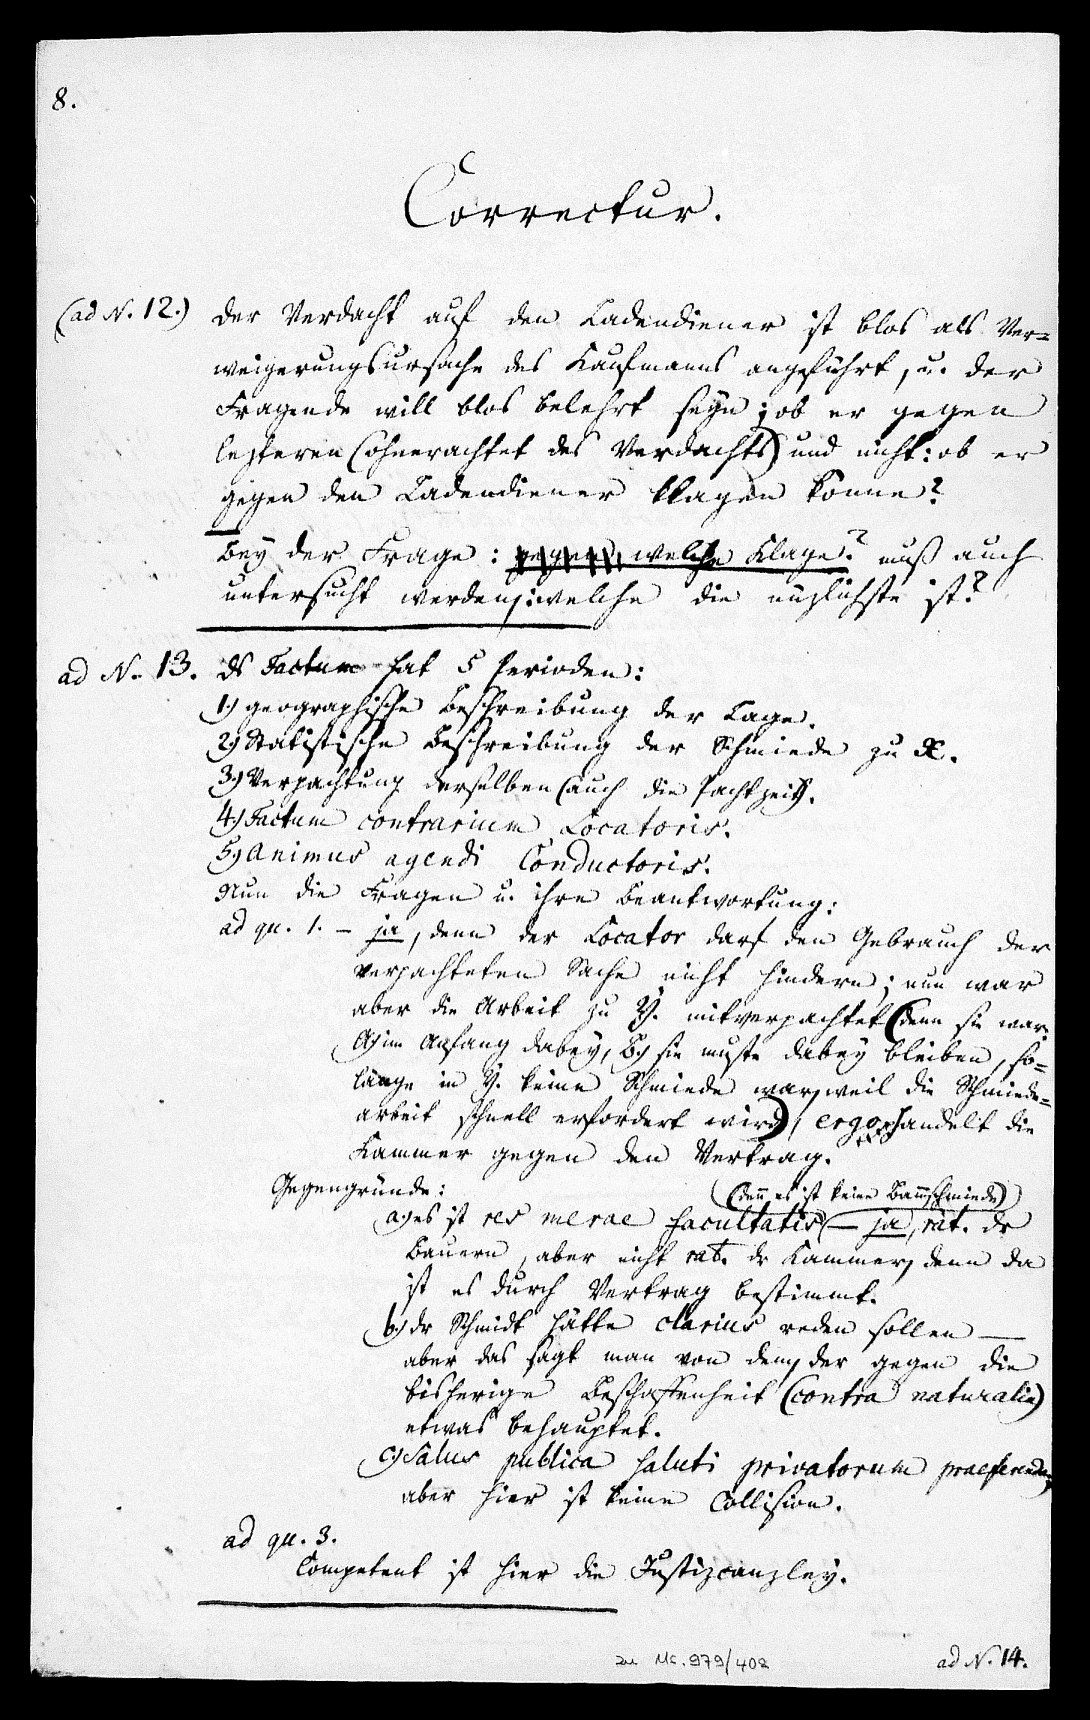 8.
Correctur.
(ad N. 12.) der Verdacht auf den Ladendiener ist blos als Ver=
weigerungsursache des Kaufmanns angeführt, u. der
Fragende will blos belehrt seyn; ob er gegen
lezteren (ohnerachtet des Verdachts) und nicht: ob er
gegen den Ladendiener klagen könne?
Bey der Frage: welche Klage? muß auch
untersucht werden: welche die nüzlichste ist?
ad N. 13. ds Factum hat 5 Perioden:
1.) geographische Beschreibung der Lage.
2.) Statistische Beschreibung der Schmiede zu X.
3.) Verpachtung derselben (auch die Pachtzeit).
4.) Factum contrarium Locatoris.
5.) Animus agendi Conductoris.
Nun die Fragen u. ihre Beantwortung:
ad qu. 1. – ja, denn der Locator darf den Gebrauch der
verpachteten Sache nicht hindern; nun war
aber die Arbeit zu Y. mitverpachtet (denn sie war
A.) im Anfang dabey, B.) sie muste dabey bleiben, so=
lange in Y. keine Schmiede war, weil die Schmiede=
arbeit schnell erfordert wird), ergo handelt die
Kammer gegen den Vertrag.
Gegengründe:
(denn es ist keine Bannschmiede)
a.) es ist res merae facultatis – ja, rat. dr
Bauern, aber nicht rat. dr Kammer, denn da
ist es durch Vertrag bestimmt.
b.) dr Schmidt hätte clarius reden sollen —
aber das sagt man von dem, der gegen die
bisherige Beschaffenheit (contra naturalia)
etwas behauptet.
c.) Salus publica saluti privatorum praeferenda,
aber hier ist keine Collision.
ad qu. 3.
Competent ist hier die Justizcanzley.
zu Mc. 979/408
ad N. 14.